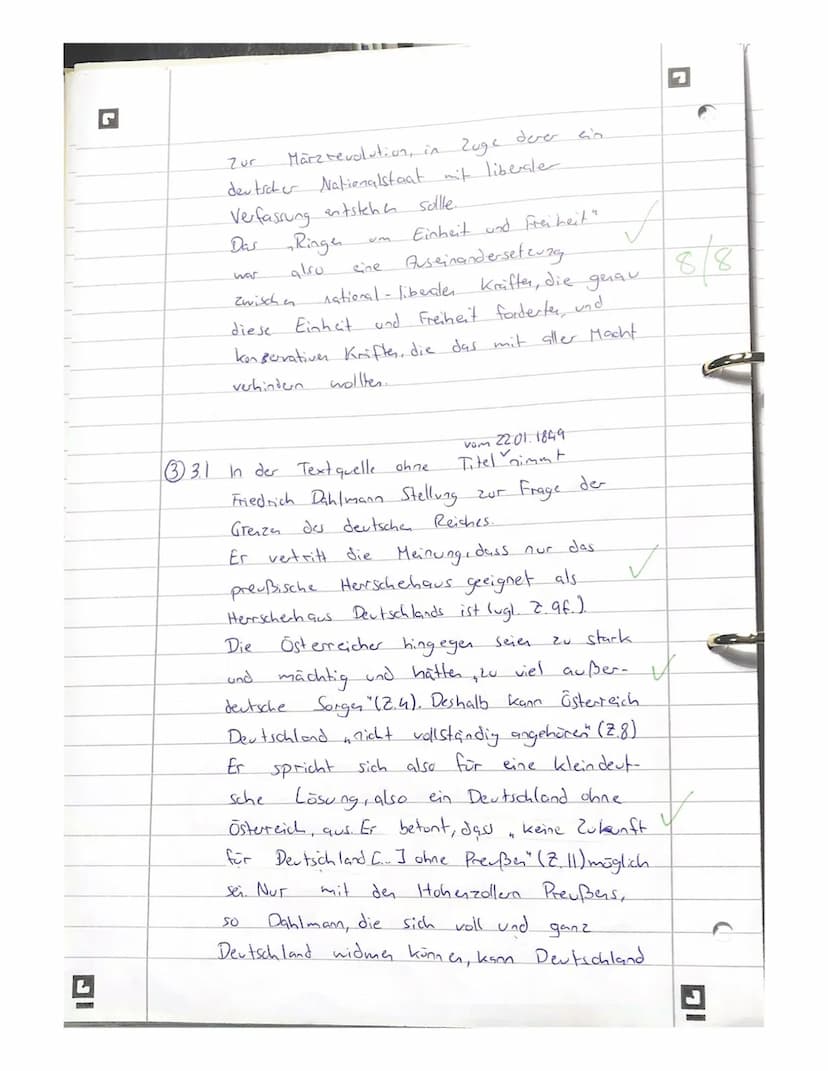 zur Märzrevolution, in Zuge derer ein
deutscher Nationalstaat mit liberaler
Verfassung entstehen sollte
Das „Ringen um Einheit und Freiheit"
war also eine Auseinandersetzung
zwischen national-liberalen Kräften, die genau
diese Einheit und Freiheit forderten, und
konservativen Kräften, die das mit aller Macht
verhindern wollten.
8/8
vom 22.01.1849
③ 3.1 In der Textquelle ohne Titel nimmt
Friedrich Dahlmann Stellung zur Frage der
Grenzen des deutschen Reiches.
Er vertritt die Meinung, dass nur das
preußische Herrscherhaus geeignet als
Herrscherhaus Deutschlands ist (vgl. Z. 9f.).
Die Österreicher hingegen seien zu stark
und mächtig und hätten „zu viel außer-
deutsche Sorgen" (Z.4). Deshalb kann Österreich
Deutschland „nicht vollständig angehören" (Z.8)
Er spricht sich also für eine kleindeut-
sche Lösung, also ein Deutschland ohne
Österreich, aus. Er betont, dass „keine Zukunft
für Deutschland [...] ohne Preußen" (Z.11) möglich
sei. Nur mit den Hohenzollern Preußens,
so Dahlmann, die sich voll und ganz
Deutschland widmen können, kann Deutschland